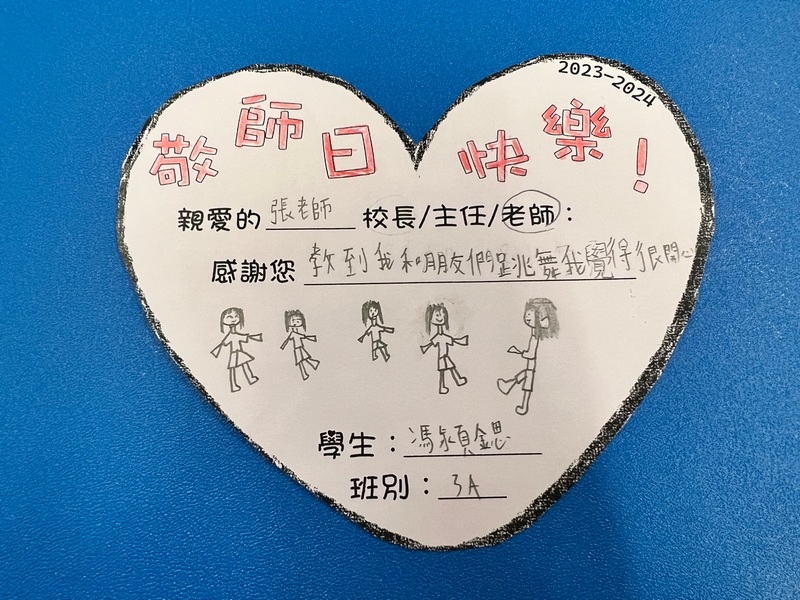 2023-2024
敬師日快樂！
親愛的 張老師 校長/主任/老師：
感謝您 教到我和朋友們跳舞我覺得很開心
學生：馮潁鍶
班別：3A